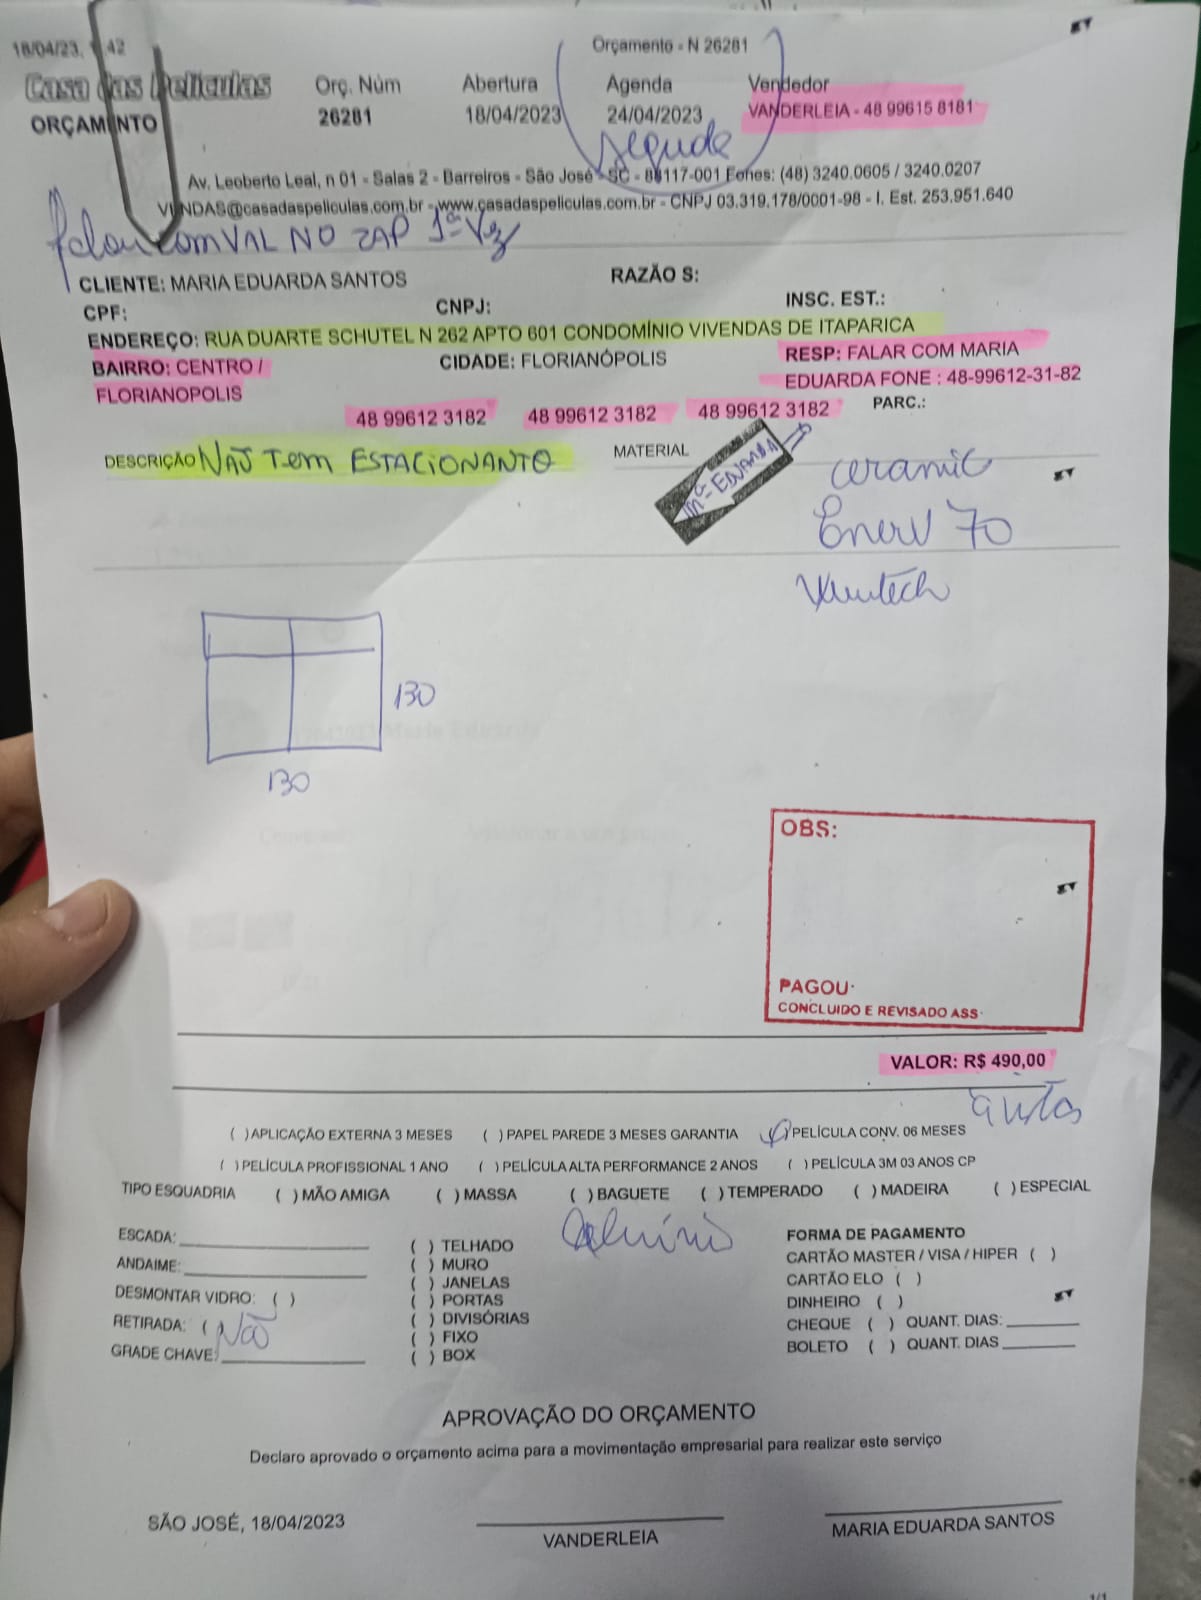 18/04/23, 42
Orçamento - N 26281
Casa das Películas
Orç. Núm
Abertura
Agenda
Vendedor
ORÇAMENTO
26281
18/04/2023
24/04/2023
VANDERLEIA - 48 99615 8181
segunda
Av. Leoberto Leal, n 01 - Salas 2 - Barreiros - São José - SC - 88117-001 Fones: (48) 3240.0605 / 3240.0207
VENDAS@casadaspeliculas.com.br - www.casadaspeliculas.com.br - CNPJ 03.319.178/0001-98 - I. Est. 253.951.640
Falou com VAL NO ZAP 1ª Vez
CLIENTE: MARIA EDUARDA SANTOS
RAZÃO S:
CPF:
CNPJ:
INSC. EST.:
ENDEREÇO: RUA DUARTE SCHUTEL N 262 APTO 601 CONDOMÍNIO VIVENDAS DE ITAPARICA
BAIRRO: CENTRO /
FLORIANOPOLIS
CIDADE: FLORIANÓPOLIS
RESP: FALAR COM MARIA
EDUARDA FONE : 48-99612-31-82
48 99612 3182
48 99612 3182
48 99612 3182
PARC.:
DESCRIÇÃO NÃO TEM ESTACIONANTO
MATERIAL
Mª EDUARDA
ceramic
Enerv 70
130
130
OBS:
PAGOU:
CONCLUIDO E REVISADO ASS:
VALOR: R$ 490,00
( ) APLICAÇÃO EXTERNA 3 MESES ( ) PAPEL PAREDE 3 MESES GARANTIA ( ) PELÍCULA CONV. 06 MESES
( ) PELÍCULA PROFISSIONAL 1 ANO ( ) PELÍCULA ALTA PERFORMANCE 2 ANOS ( ) PELÍCULA 3M 03 ANOS CP
TIPO ESQUADRIA ( ) MÃO AMIGA ( ) MASSA ( ) BAGUETE ( ) TEMPERADO ( ) MADEIRA ( ) ESPECIAL
Alumínio
ESCADA:
ANDAIME:
DESMONTAR VIDRO: ( )
RETIRADA: ( Não
GRADE CHAVE:
( ) TELHADO
( ) MURO
( ) JANELAS
( ) PORTAS
( ) DIVISÓRIAS
( ) FIXO
( ) BOX
FORMA DE PAGAMENTO
CARTÃO MASTER / VISA / HIPER ( )
CARTÃO ELO ( )
DINHEIRO ( )
CHEQUE ( ) QUANT. DIAS:
BOLETO ( ) QUANT. DIAS
APROVAÇÃO DO ORÇAMENTO
Declaro aprovado o orçamento acima para a movimentação empresarial para realizar este serviço
SÃO JOSÉ, 18/04/2023
VANDERLEIA
MARIA EDUARDA SANTOS
1/1